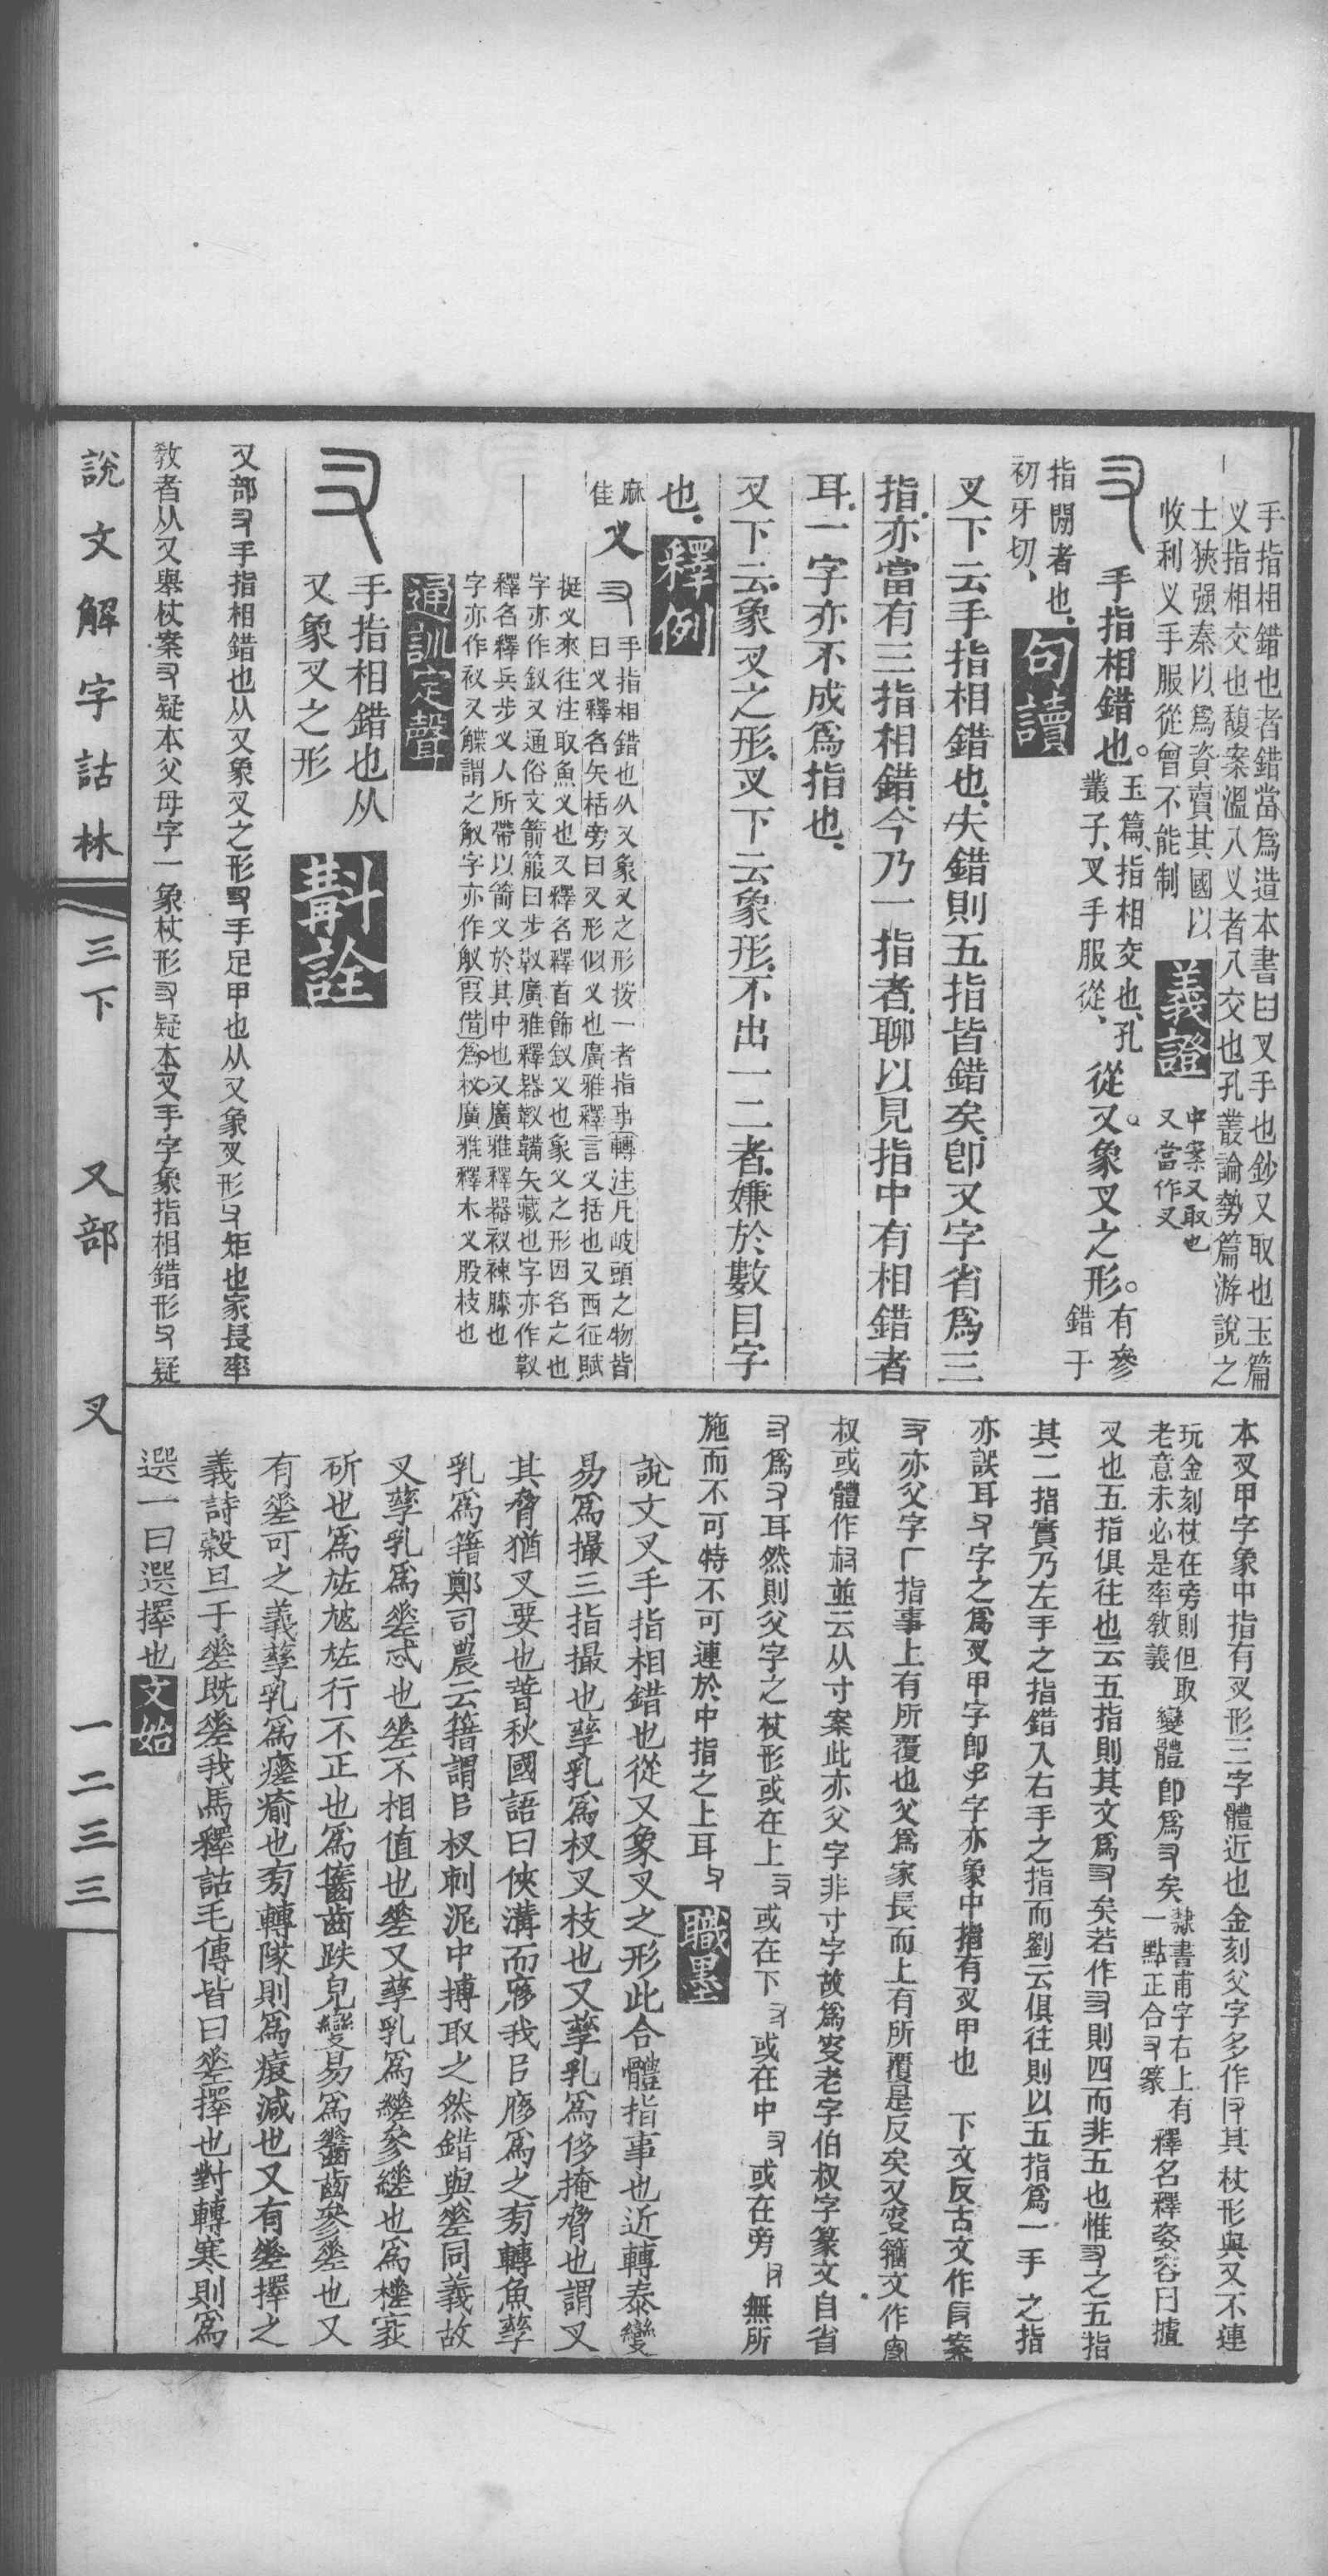 手指相錯也者錯當爲造本書曰叉手也鈔叉取也玉篇
叉指相交也馥案溫八叉者八交也孔叢論勢篇游說之
士挾强秦以爲資賣其國以
收利叉手服從曾不能制
義證
中案叉取也
叉當作叉
手指相錯也。
玉篇、指相交也、孔
叢子、叉手服從、
從又。象叉之形。
有參
錯于
指閒者也、
初牙切、
句讀
叉下云手指相錯也、夫錯則五指皆錯矣、卽又字省爲三
指、亦當有三指相錯、今乃一指者、聊以見指中有相錯者
耳、一字亦不成爲指也、
叉下云、象叉之形、叉下云象形、不出一二者、嫌於數目字
也、
釋例
麻
佳
叉
手指相錯也从又象叉之形按一者指事轉注凡岐頭之物皆
曰叉釋名矢栝旁曰叉形似叉也廣雅釋言叉括也又西征賦
挺叉來往注取魚叉也又釋名釋首飾釵叉也象叉之形因名之也
字亦作釵又通俗文箭箙曰步靫廣雅釋器靫韊矢藏也字亦作靫
釋名釋兵步叉人所帶以箭叉於其中也又廣雅釋器衩䄡膝也
字亦作衩又觽謂之䚢字亦作䚢假借爲杈廣雅釋木叉股枝也
通訓定聲
手指相錯也从
又象叉之形
斠詮
又部手指相錯也从又象叉之形手足甲也从又象叉形矩也家長率
敎者从又舉杖案疑本父母字一象杖形疑本叉手字象指相錯形疑
本叉甲字象中指有叉形三字體近也金刻父字多作其杖形與又不連
玩金刻杖在旁則但取
老意未必是率敎義
變體卽爲矣
隸書甫字右上有
一點正合篆
釋名釋姿容曰摣
叉也五指俱往也云五指則其文爲矣若作則四而非五也惟之五指
其二指實乃左手之指錯入右手之指而劉云俱往則以五指爲一手之指
亦誤耳字之爲叉甲字卽字亦象中指有叉甲也　下文反古文作案
亦父字厂指事上有所覆也父爲家長而上有所覆是反矣又叜籀文作
叔或體作並云从寸案此亦父字非寸字故爲叜老字伯叔字篆文自省
爲耳然則父字之杖形或在上或在下或在中或在旁無所
施而不可特不可連於中指之上耳
職墨
說文叉手指相錯也從又象叉之形此合體指事也近轉泰變
易爲撮三指撮也孳乳爲杈叉枝也又孳乳爲侈掩脅也謂叉
其脅猶叉要也晉秋國語曰俠溝而㢋我㠯㢋爲之旁轉魚孳
乳爲籍鄭司農云籍謂㠯杈刺泥中搏取之然錯與𢀩同義故
叉孳乳爲𢀩忒也𢀩不相値也𢀩又孳乳爲縒參縒也爲槎衺
斫也爲㝾㝾行不正也爲齹齒跌皃變易爲齒參𢀩也又
有𢀩可之義孳乳爲瘥瘉也旁轉隊則爲㾊減也又有𢀩擇之
義詩穀旦于𢀩旣𢀩我馬釋詁毛傳皆曰𢀩擇也對轉寒則爲
選一曰選擇也
文始
說文解字詁林　三下　又部　叉　一二三三